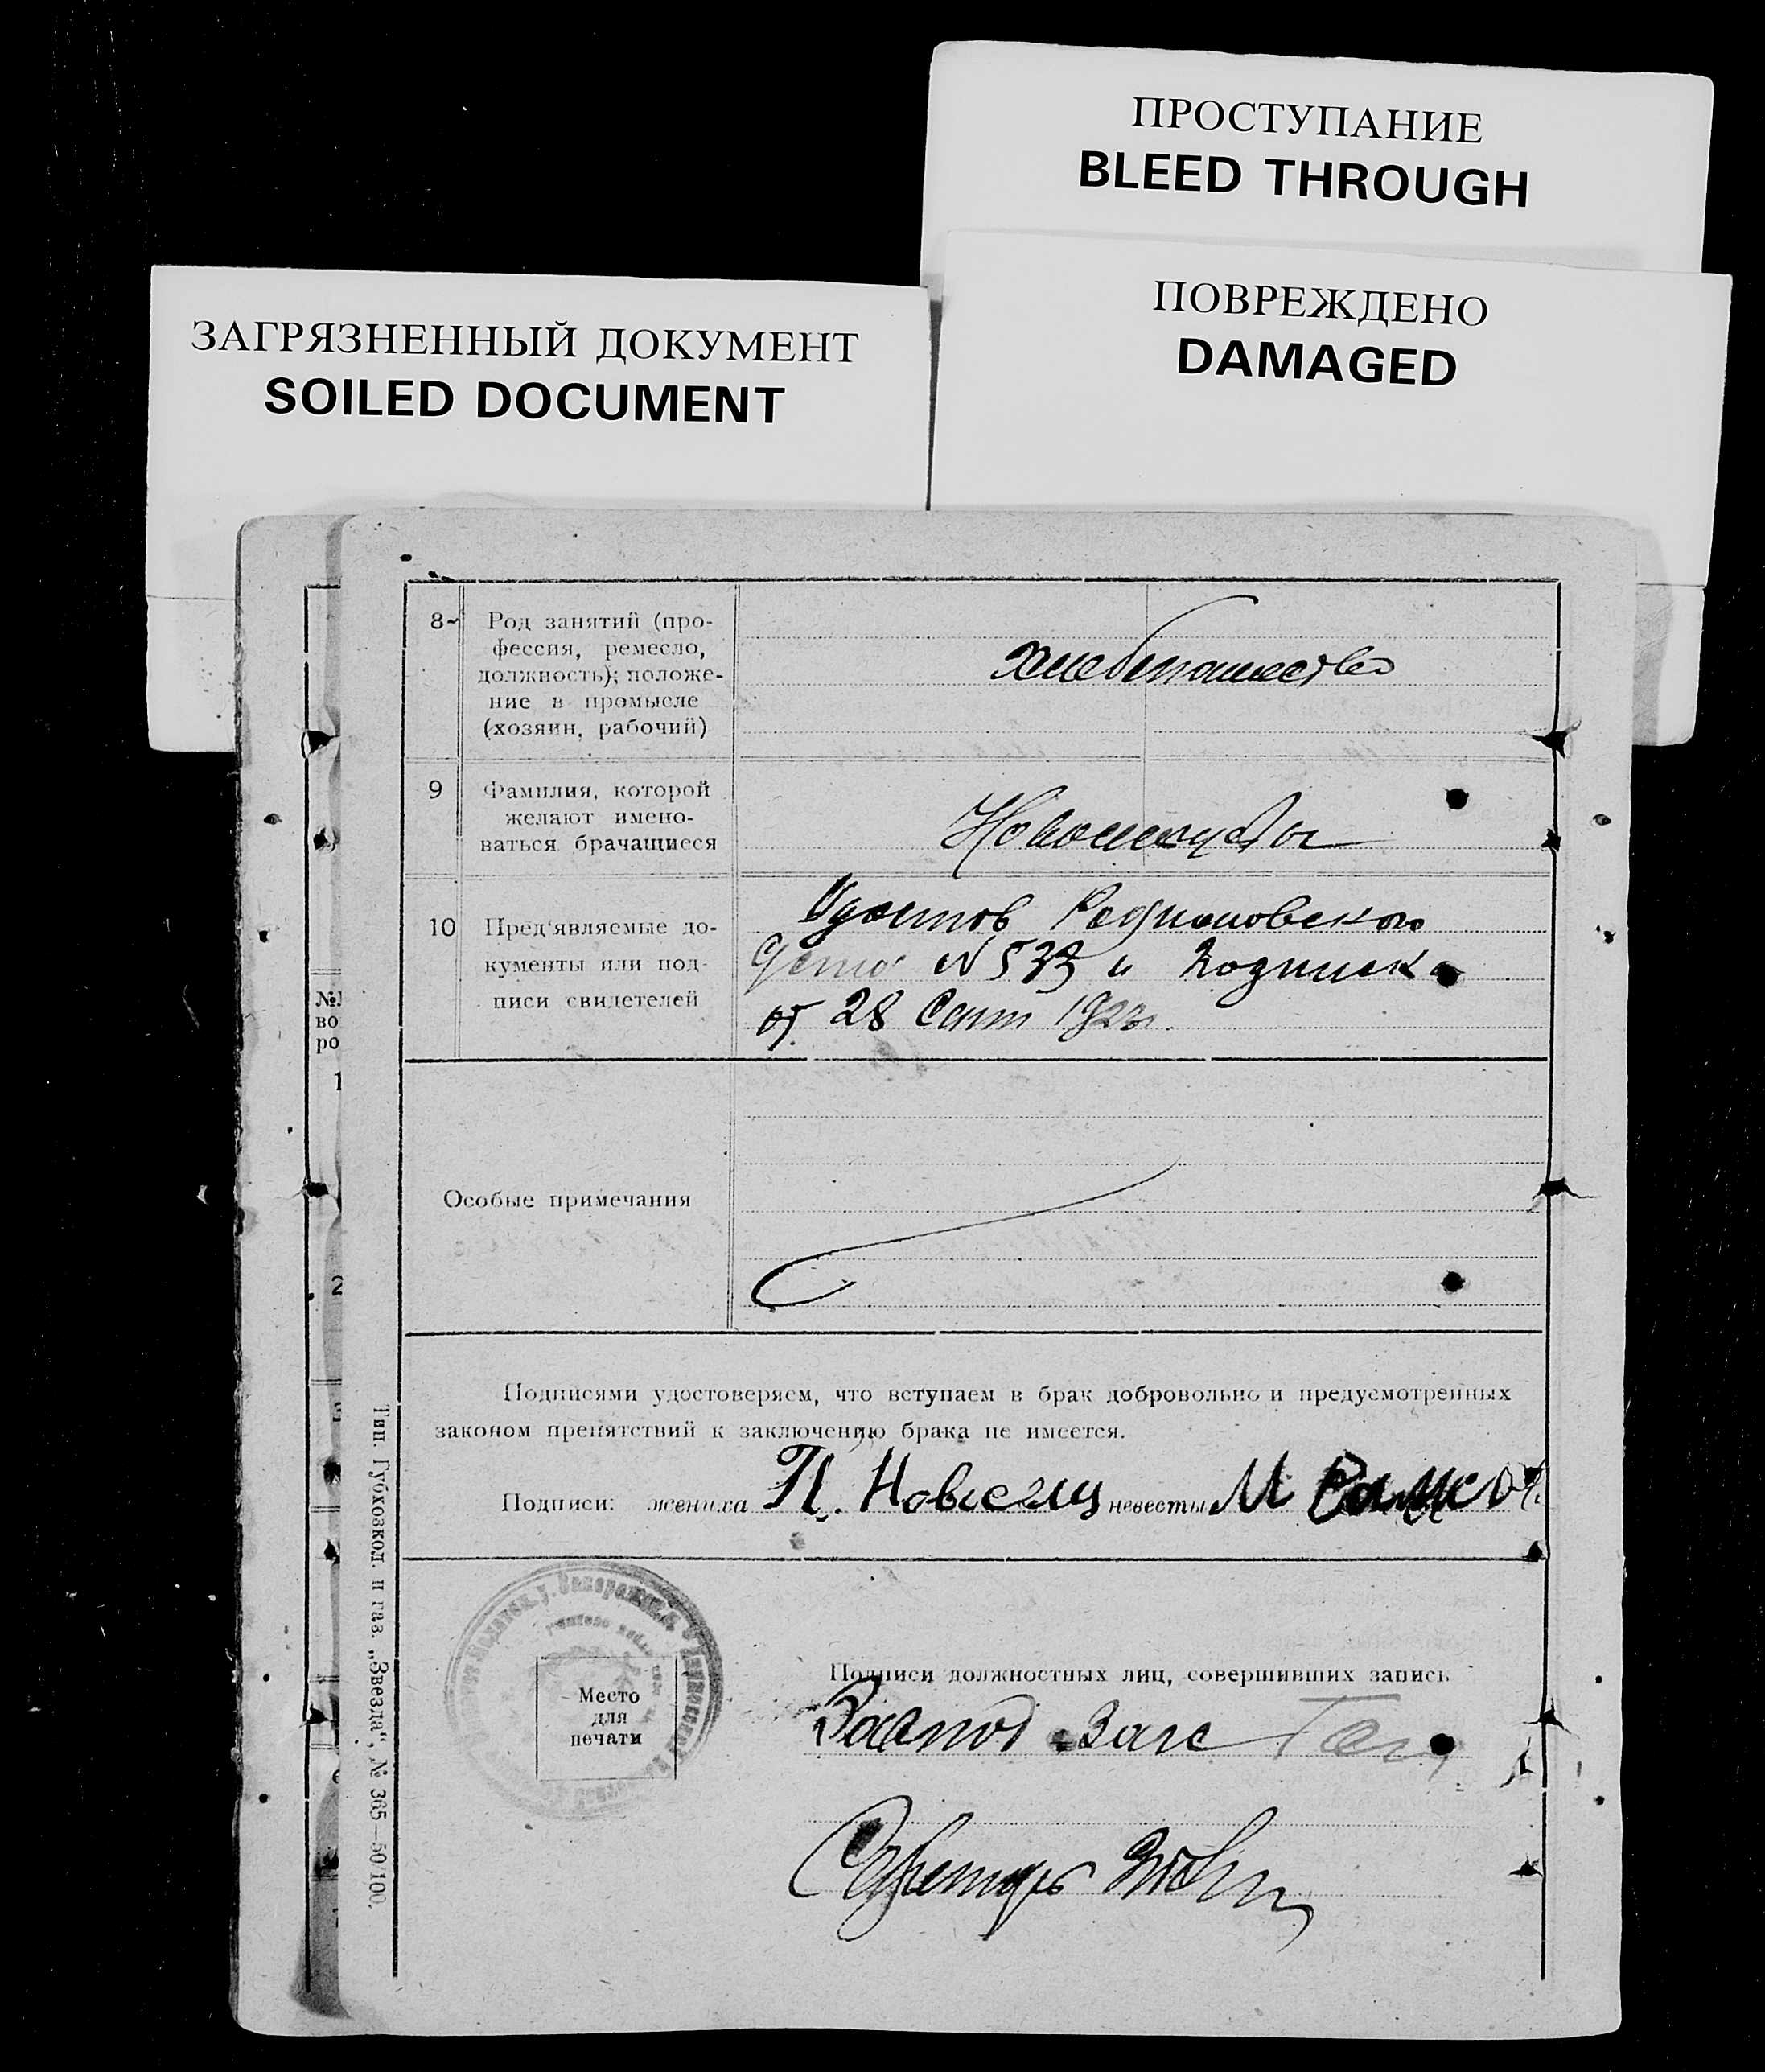 ПРОСТУПАНИЕ
BLEED THROUGH
ПОВРЕЖДЕНО
DAMAGED
ЗАГРЯЗНЕННЫЙ ДОКУМЕНТ
SOILED DOCUMENT
8
Род занятий (про-
фессия, ремесло,
должность); положе-
ние в промысле
(хозяин, рабочий)
хлебопашество
9
Фамилия, которой
желают имено-
ваться брачащиеся
10
Пред'являемые до-
кументы или под-
писи свидетелей
Удостов
N 533 и подписка
от 28 Сент 1923г.
№
во
ро
1
2
Особые примечания
Подписями удостоверяем, что вступаем в брак добровольно и предусмотренных
законом препятствий к заключению брака не имеется.
Подписи: жениха П. невесты М
Место
для
печати
Подписи должностных лиц, совершивших запись
Загс
Секретарь
Тип. Губхозкол. п газ. „Звезда“, № 365—50/100.